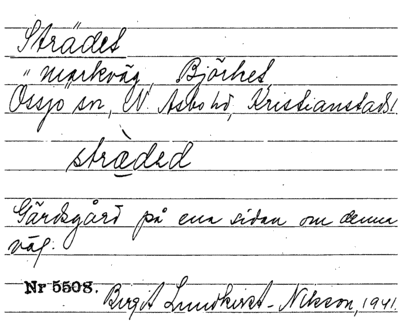 Strädet
markväg, Björhet,
Össjö sn, N. Åsbo hd, Kristianstads l.
strædəd
Gärdsgård på ena sidan om denna
väg.
Nr 5508. Birgit Lundkvist-Nilsson, 1941.